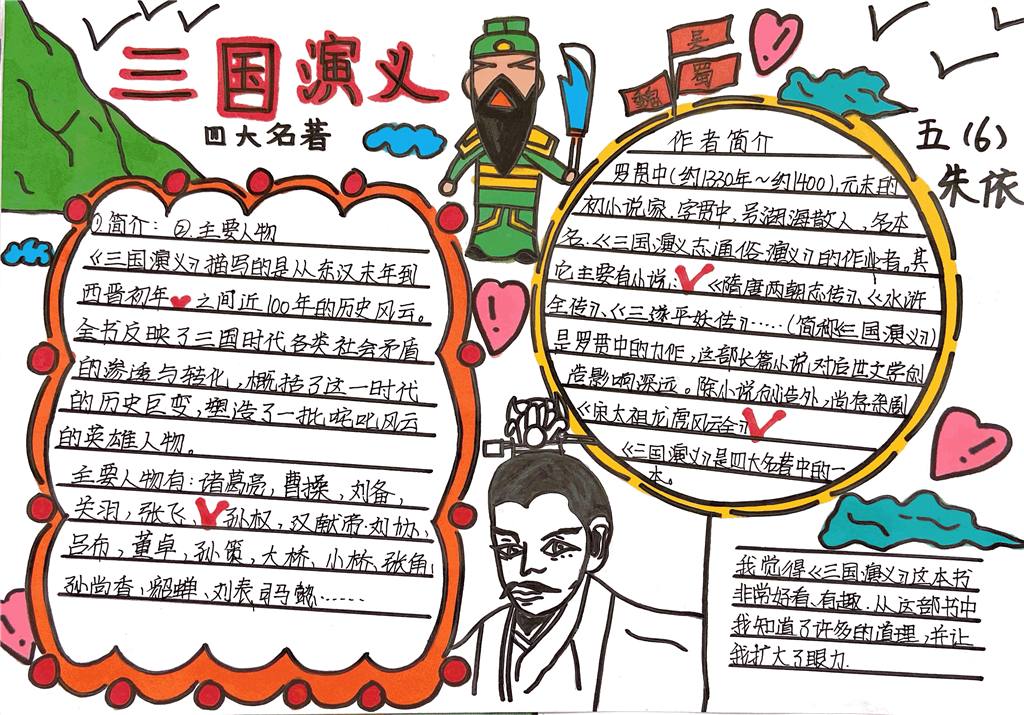 三国演义
四大名著
吴
蜀
魏
五(6)
朱依
①简介：②主要人物
《三国演义》描写的是从东汉末年到
西晋初年之间近100年的历史风云。
全书反映了三国时代各类社会矛盾
的渗透与转化，概括了这一时代
的历史巨变，塑造了一批咤叱风云
的英雄人物。
主要人物有：诸葛亮，曹操，刘备，
关羽，张飞、孙权，汉献帝·刘协，
吕布，董卓，孙策，大桥、小桥、张角，
孙尚香、貂蝉、刘表司马懿……
作者简介
罗贯中(约1330年～约1400)，元末的
初小说家，字贯中，号湖海散人，名本
名.《三国演义志通俗演义》的作业者。其
它主要有小说：《隋唐两朝志传》、《水浒
全传》、《三遂平妖传》……(简称《三国演义》)
是罗贯中的力作，这部长篇小说对后世文学创
造影响深远。除小说创造外，尚存杂剧
《宋太祖龙虎风云会》
《三国演义》是四大名著中的一
本。
我觉得《三国演义》这本书
非常好看、有趣.从这部书中
我知道了许多的道理，并让
我扩大了眼力.